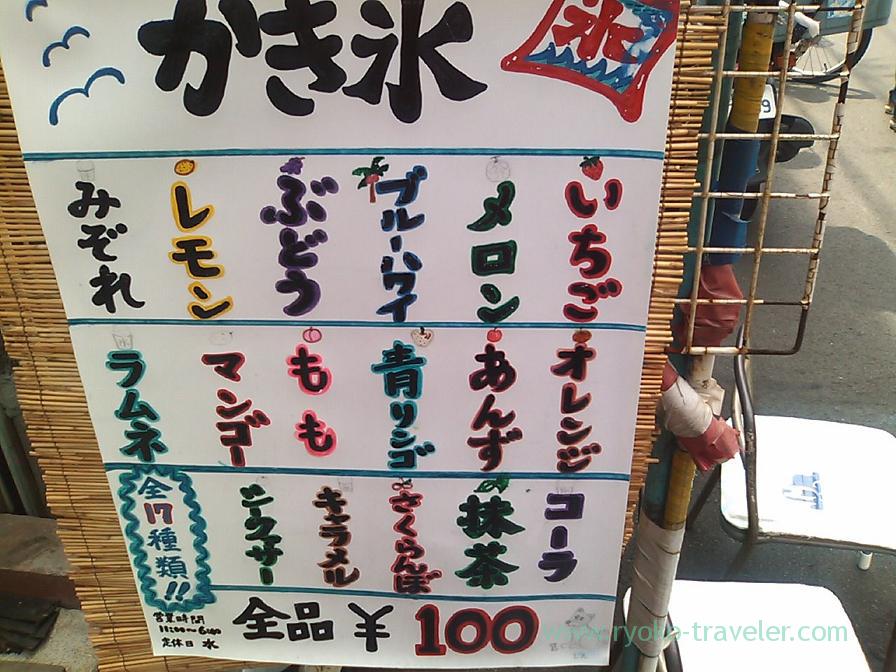 かき氷
氷
いちご
メロン
ブルーハワイ
ぶどう
レモン
みぞれ
オレンジ
あんず
青リンゴ
もも
マンゴー
ラムネ
コーラ
抹茶
さくらんぼ
キャラメル
シークワサー
全17種類!!
全品¥100
営業時間
11:00~6:00
定休日 水
www.ryoko-traveler.com